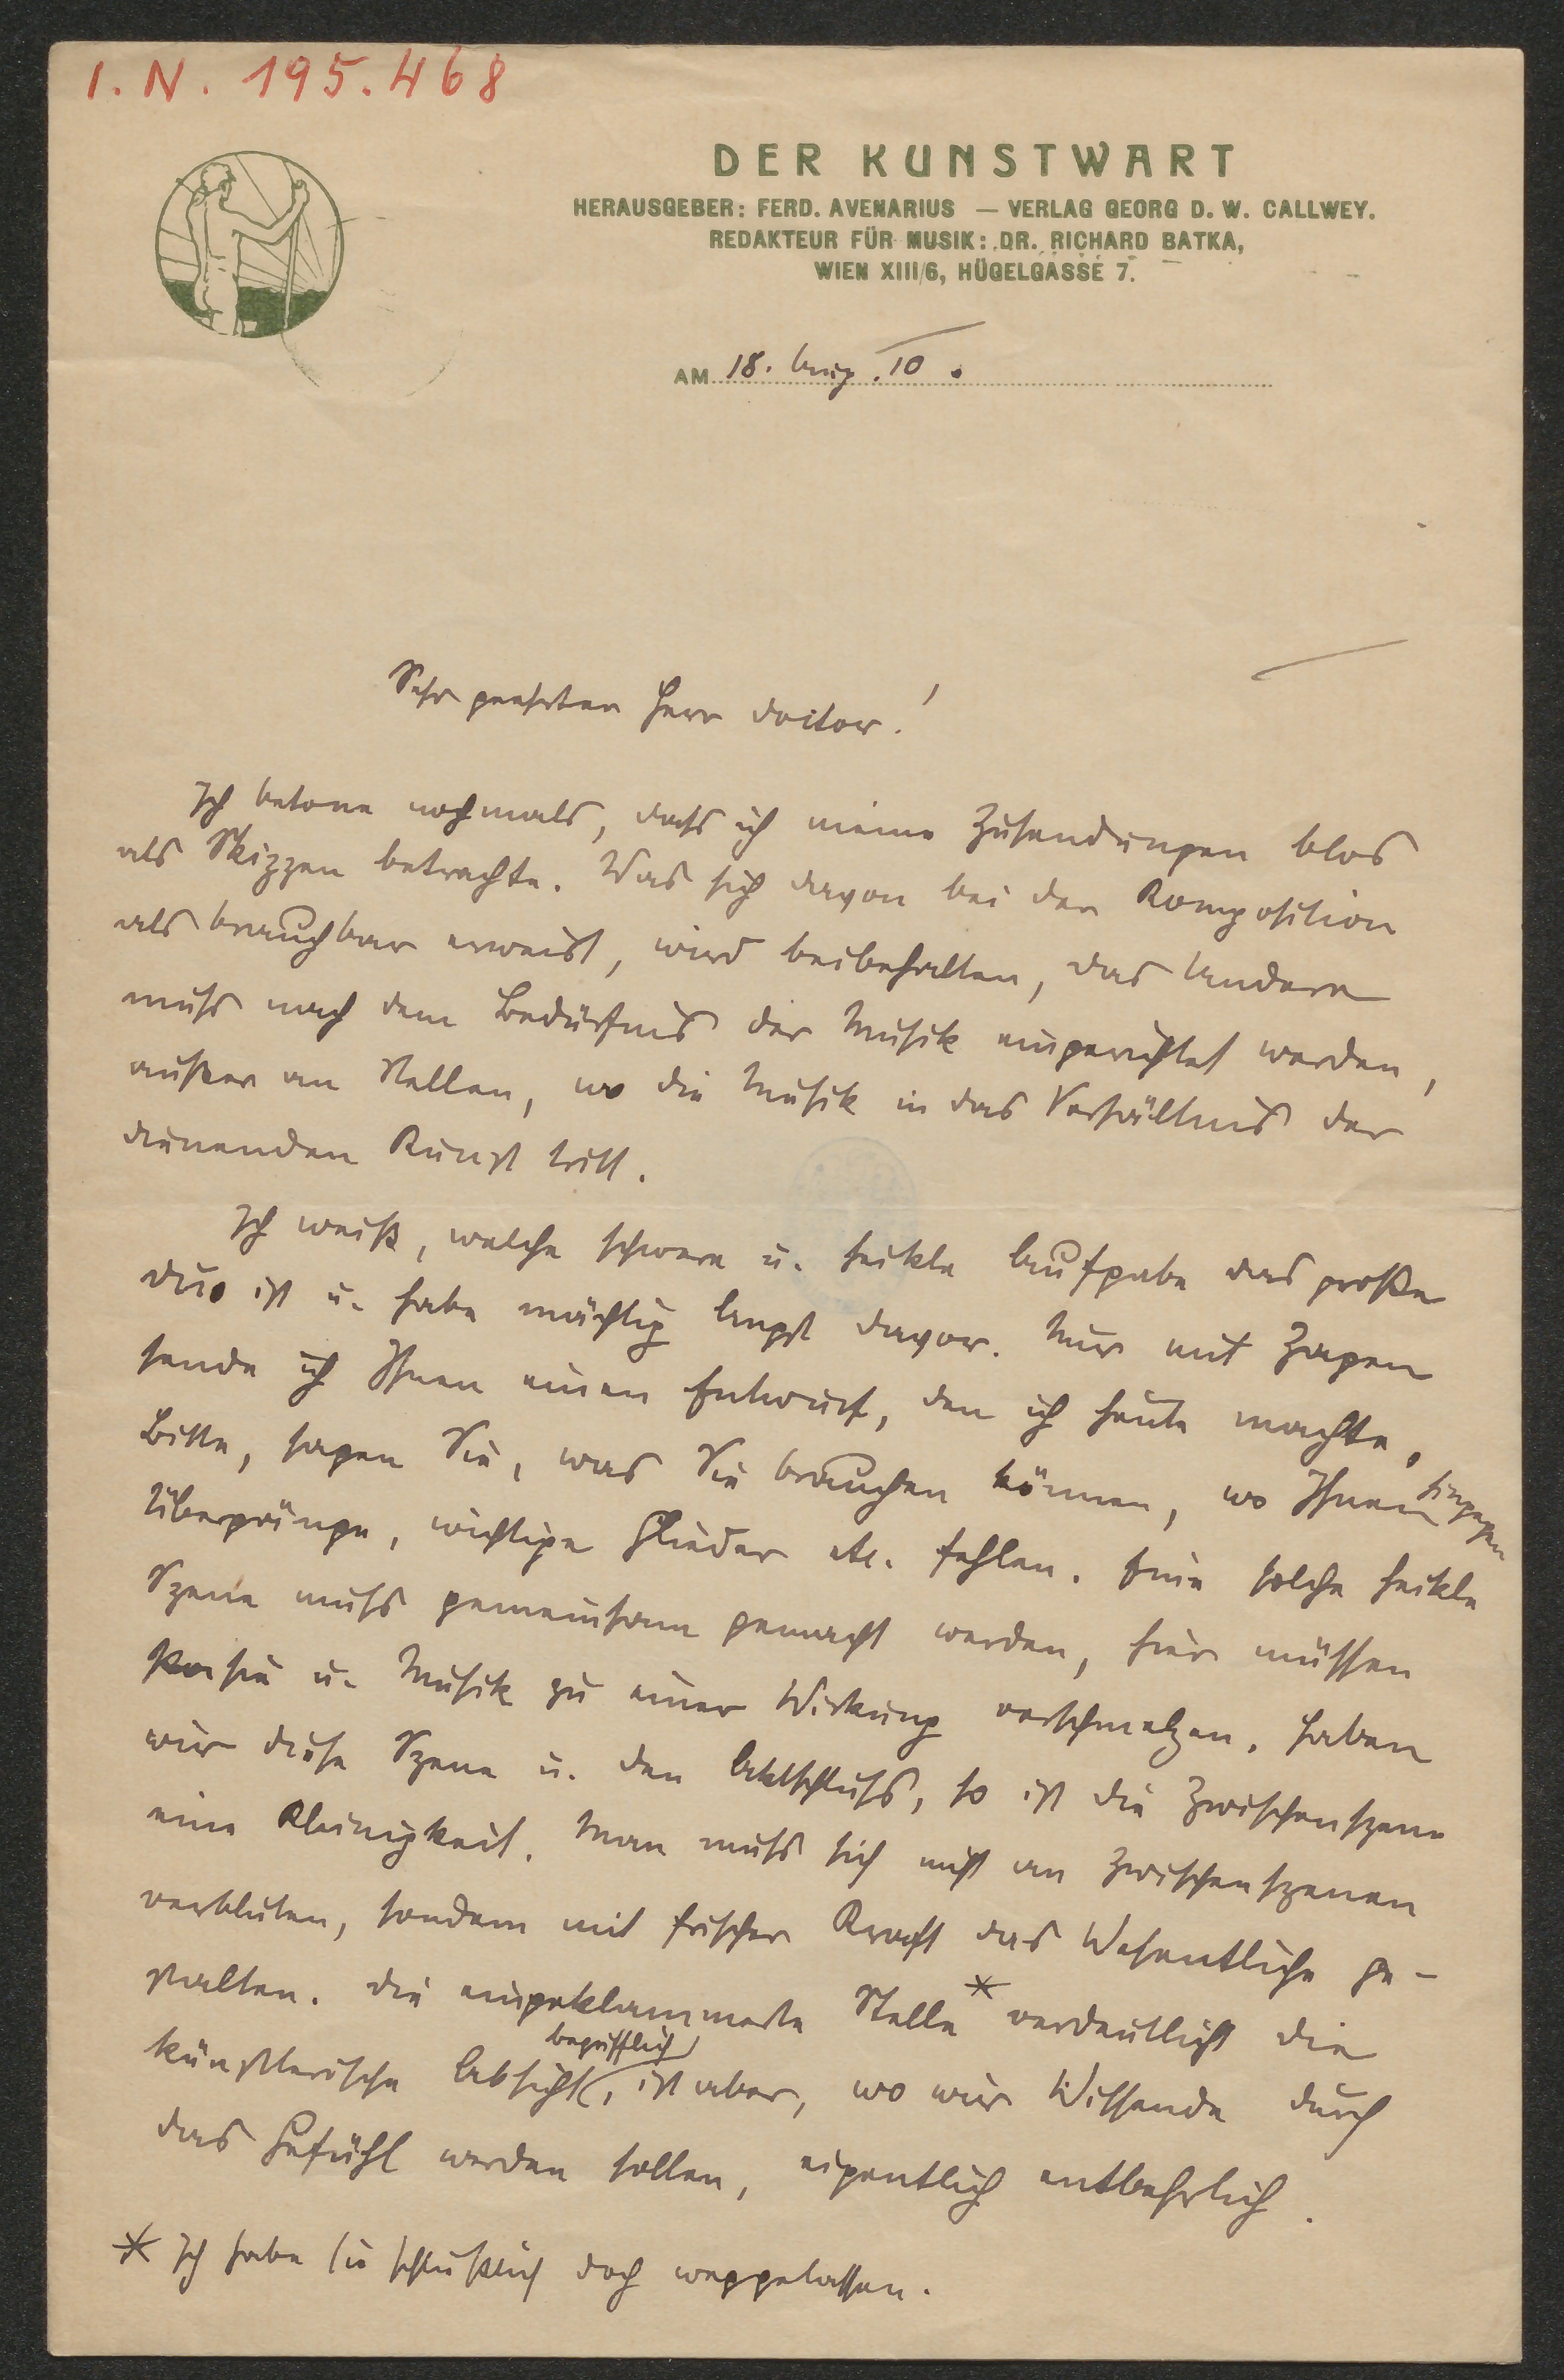 I.N. 195.468
DER KUNSTWART
HERAUSGEBER: FERD. AVENARIUS — VERLAG GEORG D. W. CALLWEY.
REDAKTEUR FÜR MUSIK: DR. RICHARD BATKA,
WIEN XIII/6, HÜGELGASSE 7.
AM 18. Aug. 10.
Sehr geehrter Herr Doctor!
Ich betone nochmals, dass ich meine Zusendungen blos
als Skizzen betrachte. Was sich davon bei der Komposition
als brauchbar erweist, wird beibehalten, das Andere
muss nach dem Bedürfnis der Musik eingerichtet werden,
außer an Stellen, wo die Musik in das Verhältnis der
dienenden Kunst tritt.
Ich weiß, welche schwere u. heikle Aufgabe das große
Duo ist u. habe mächtig Angst davor. Nur mit Zagen
sende ich Ihnen einen Entwurf, den ich heute machte,
Bitte, sagen Sie, was Sie brauchen können, wo Ihnen hingegen
Übergänge, wichtige Glieder etc. fehlen. Eine solche heikle
Szene muss gemeinsam gemacht werden, hier müssen
Poesie u. Musik zu einer Wirkung verschmelzen. Haben
wir diese Szene u. den Aktschluss, so ist die Zwischenszene
eine Kleinigkeit. Man muss sich nicht an Zwischenszenen
verbluten, sondern mit frischer Kraft das Wesentliche ge-
stalten. Die eingeklammerte Stelle * verdeutlicht die
künstlerische Absicht begrifflich, ist aber, wo wir Wissende durch
das Gefühl werden sollen, eigentlich entbehrlich.
* Ich habe sie schließlich doch weggelassen.